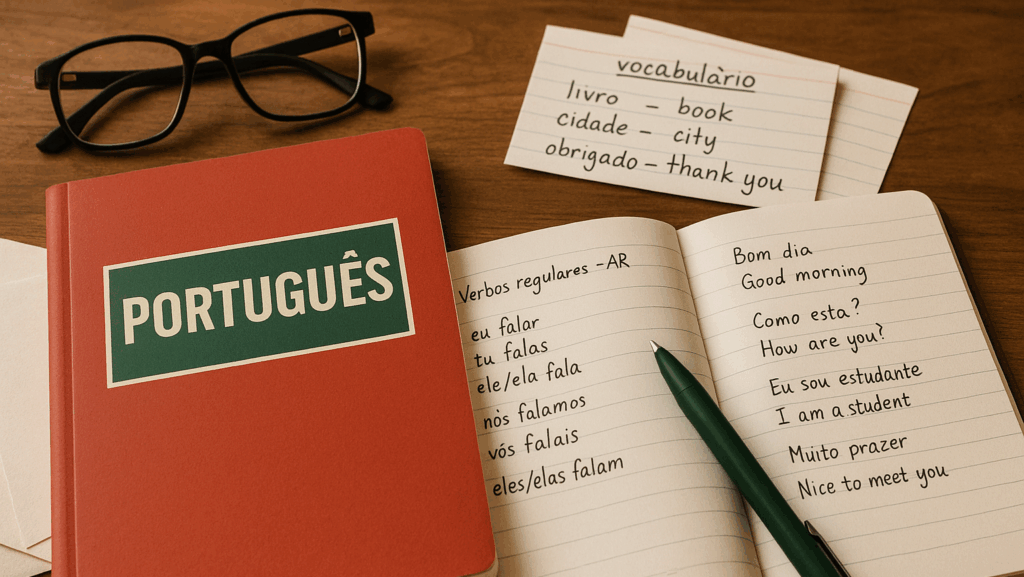 PORTUGUÊS
vocabulàrio
livro – book
cidade – city
obrigado – thank you
Verbos regulares -AR
eu falar
tu falas
ele/ela fala
nòs falamos
vós falais
eles/elas falam
Bom dia
Good morning
Como esta?
How are you?
Eu sou estudante
I am a student
Muito prazer
Nice to meet you